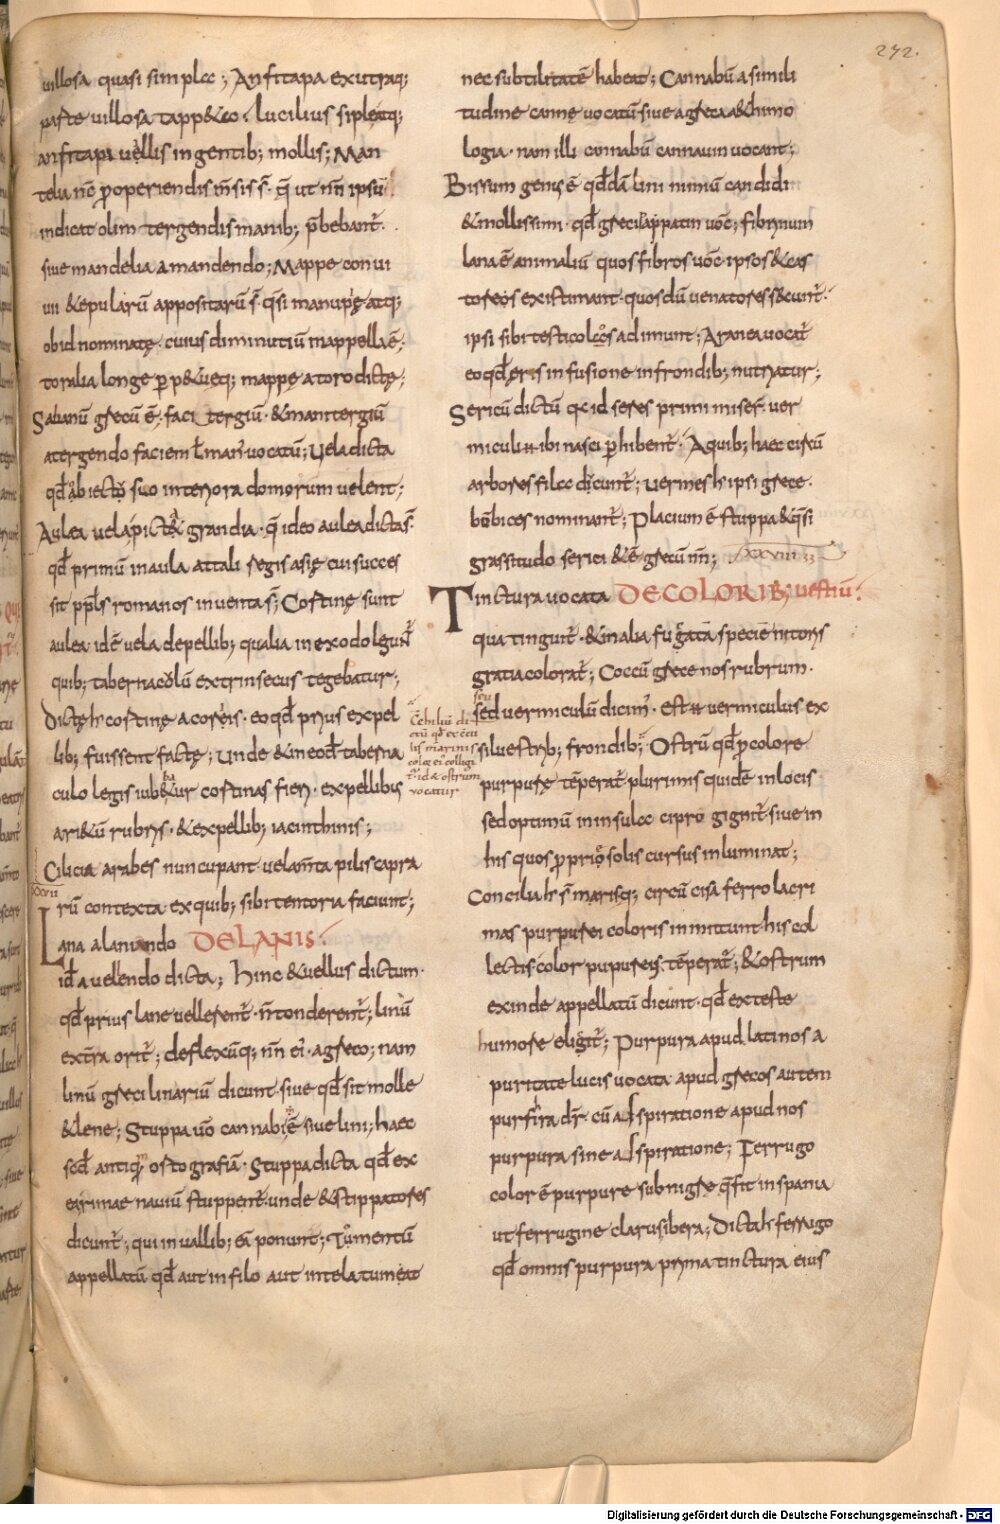 272.
uillosa quasi simplex; Anfitapa exutraq;
parte uillosa tapp&a; lucilius siplęatq;
anfitapi uellis ingentib; mollis; Man
telia nc̄ ꝑoperiendis m̄sis s̄. quę ut nn̄ ipsū
indicat olim tergendis manib; p̄bebant̄.
siue mandelia amandendo; Mappe conui
uii &epularū appositarū s̄ q̄si manupę atq;
obid nominatę. cuius diminutiū mappella ē;
toralia longe ꝑp&ueq; mappę atoro dictę;
Sabanū grecū ē; faci tergiū. &manitergiū
atergendo faciem ł man' uocatū; Uela dicta
qđ obiectǒ suo interiora domorum uelent;
Aulea uela picta & grandia. q̄ ideo aulea dicta s̄
qđ primū inaula attali regis asię cui succes
sit ppl̄s romanos inuenta s̄; Cortinę sunt
aulea idē uela depellib; qualia in exodo legunt̄
quib; tabernacolū extrinsecus tegebatur;
Dictę h̄ cortinę acoreis. eo qđ prius expel
lib; fuissent factę; Unde &ineođ taberna
culo legis iub&ur cortinas fieri. expellibus
ari&ū rubris. &expellib; iacinthinis;
Cilicia arabes nuncupant uelam̄ta pilis capra
XXVII
rū contexta exquib; sibi tentoria faciunt;
Lana alaniando DELANIS.
id' auellendo dicta; hinc &uellus dictum.
qđ prius lane uellerent̄. n̄ tonderent̄; linū
extr̄a orit̄; deflexūq; nn̄ ei'. agreco; nam
linū greci linariū dicunt. siue qđ sit molle
&lene; Stuppa uo cannabi ē siue lini; haec
scđ antiq̄ ortografiā. Stuppa dicta qđ ex
earimae nauiū stuppent̄. unde &stippatores
dicunt̄; qui inuallib; eā ponunt; Tomentū
appellatū qđ aut in filo aut intela tumeat
Cēhiliū di
ctū qđ ex ccu
lis marinis
colę ei' colligi
t̄. id ē ostrum
uocatur
nec subtilitatē habeat; Cannabū asimili
tudine canne uocatū siue agreca &himo
logia. nam illi cannabū cannauin uocant;
Bissum genus ē qđdā lini nimiū candidi
&mollissimi. qđ greci appatin uoc̄; fibrinum
lana ē animaliū quos fibros uoc̄. ipsos &cas
toreos existimant. quos dū uenatores secunt̄.
ipsi sibi testicolos adimunt; Aranea uocat̄
eo qđ ęris infusione infrondib; nutriatur;
Sericū dictū qc id seres primi miser̄. uer
miculi ibi nasci ꝑhibent̄. Aquib; haec circū
arbores filcc dicunt̄; uermes h̄ ipsi grece.
bōbices nominant̄; Placium ē stuppa &q̄si
grassitudo serici &ē grecū nn̄; XXVIII
Tinctura uocata DECOLORIB; uestiū;
qua tinguit̄. &inalia fugātā speciē nitoris
gratia colorat̄; Coccū grece nos rubrum.
seu
sed uermiculū dicim'. est uermiculus ex
siluestrib; frondib; Ostrū qđ ꝓcolore
purpurę tēperat̄. plurimis quidē inlocis
sed optimū ininsulcc cipro gignit̄. siue in
his quos ꝓprio solis cursus inluminat;
Concilia h̄ s̄ marisq; circū cisa ferro lacri
mas purpurei coloris inmittunt. his col
lectis. color pupureis. tēperat̄; &ostrum
exinde appellatū dicunt. qđ exteste
humore eligit̄; Purpura apud latinos a
puritate lucis uocata. apud grecos autem
purfira dr̄. cū aspiratione apud nos
purpura sine aspiratione; Ferrugo
color ē purpure subnigre q̄fit inspania
ut ferrugine clarus ibera; Dicta h̄ ferrugo
qđ omnis purpura prima tinctura eius
Digitalisierung gefördert durch die Deutsche Forschungsgemeinschaft - DFG